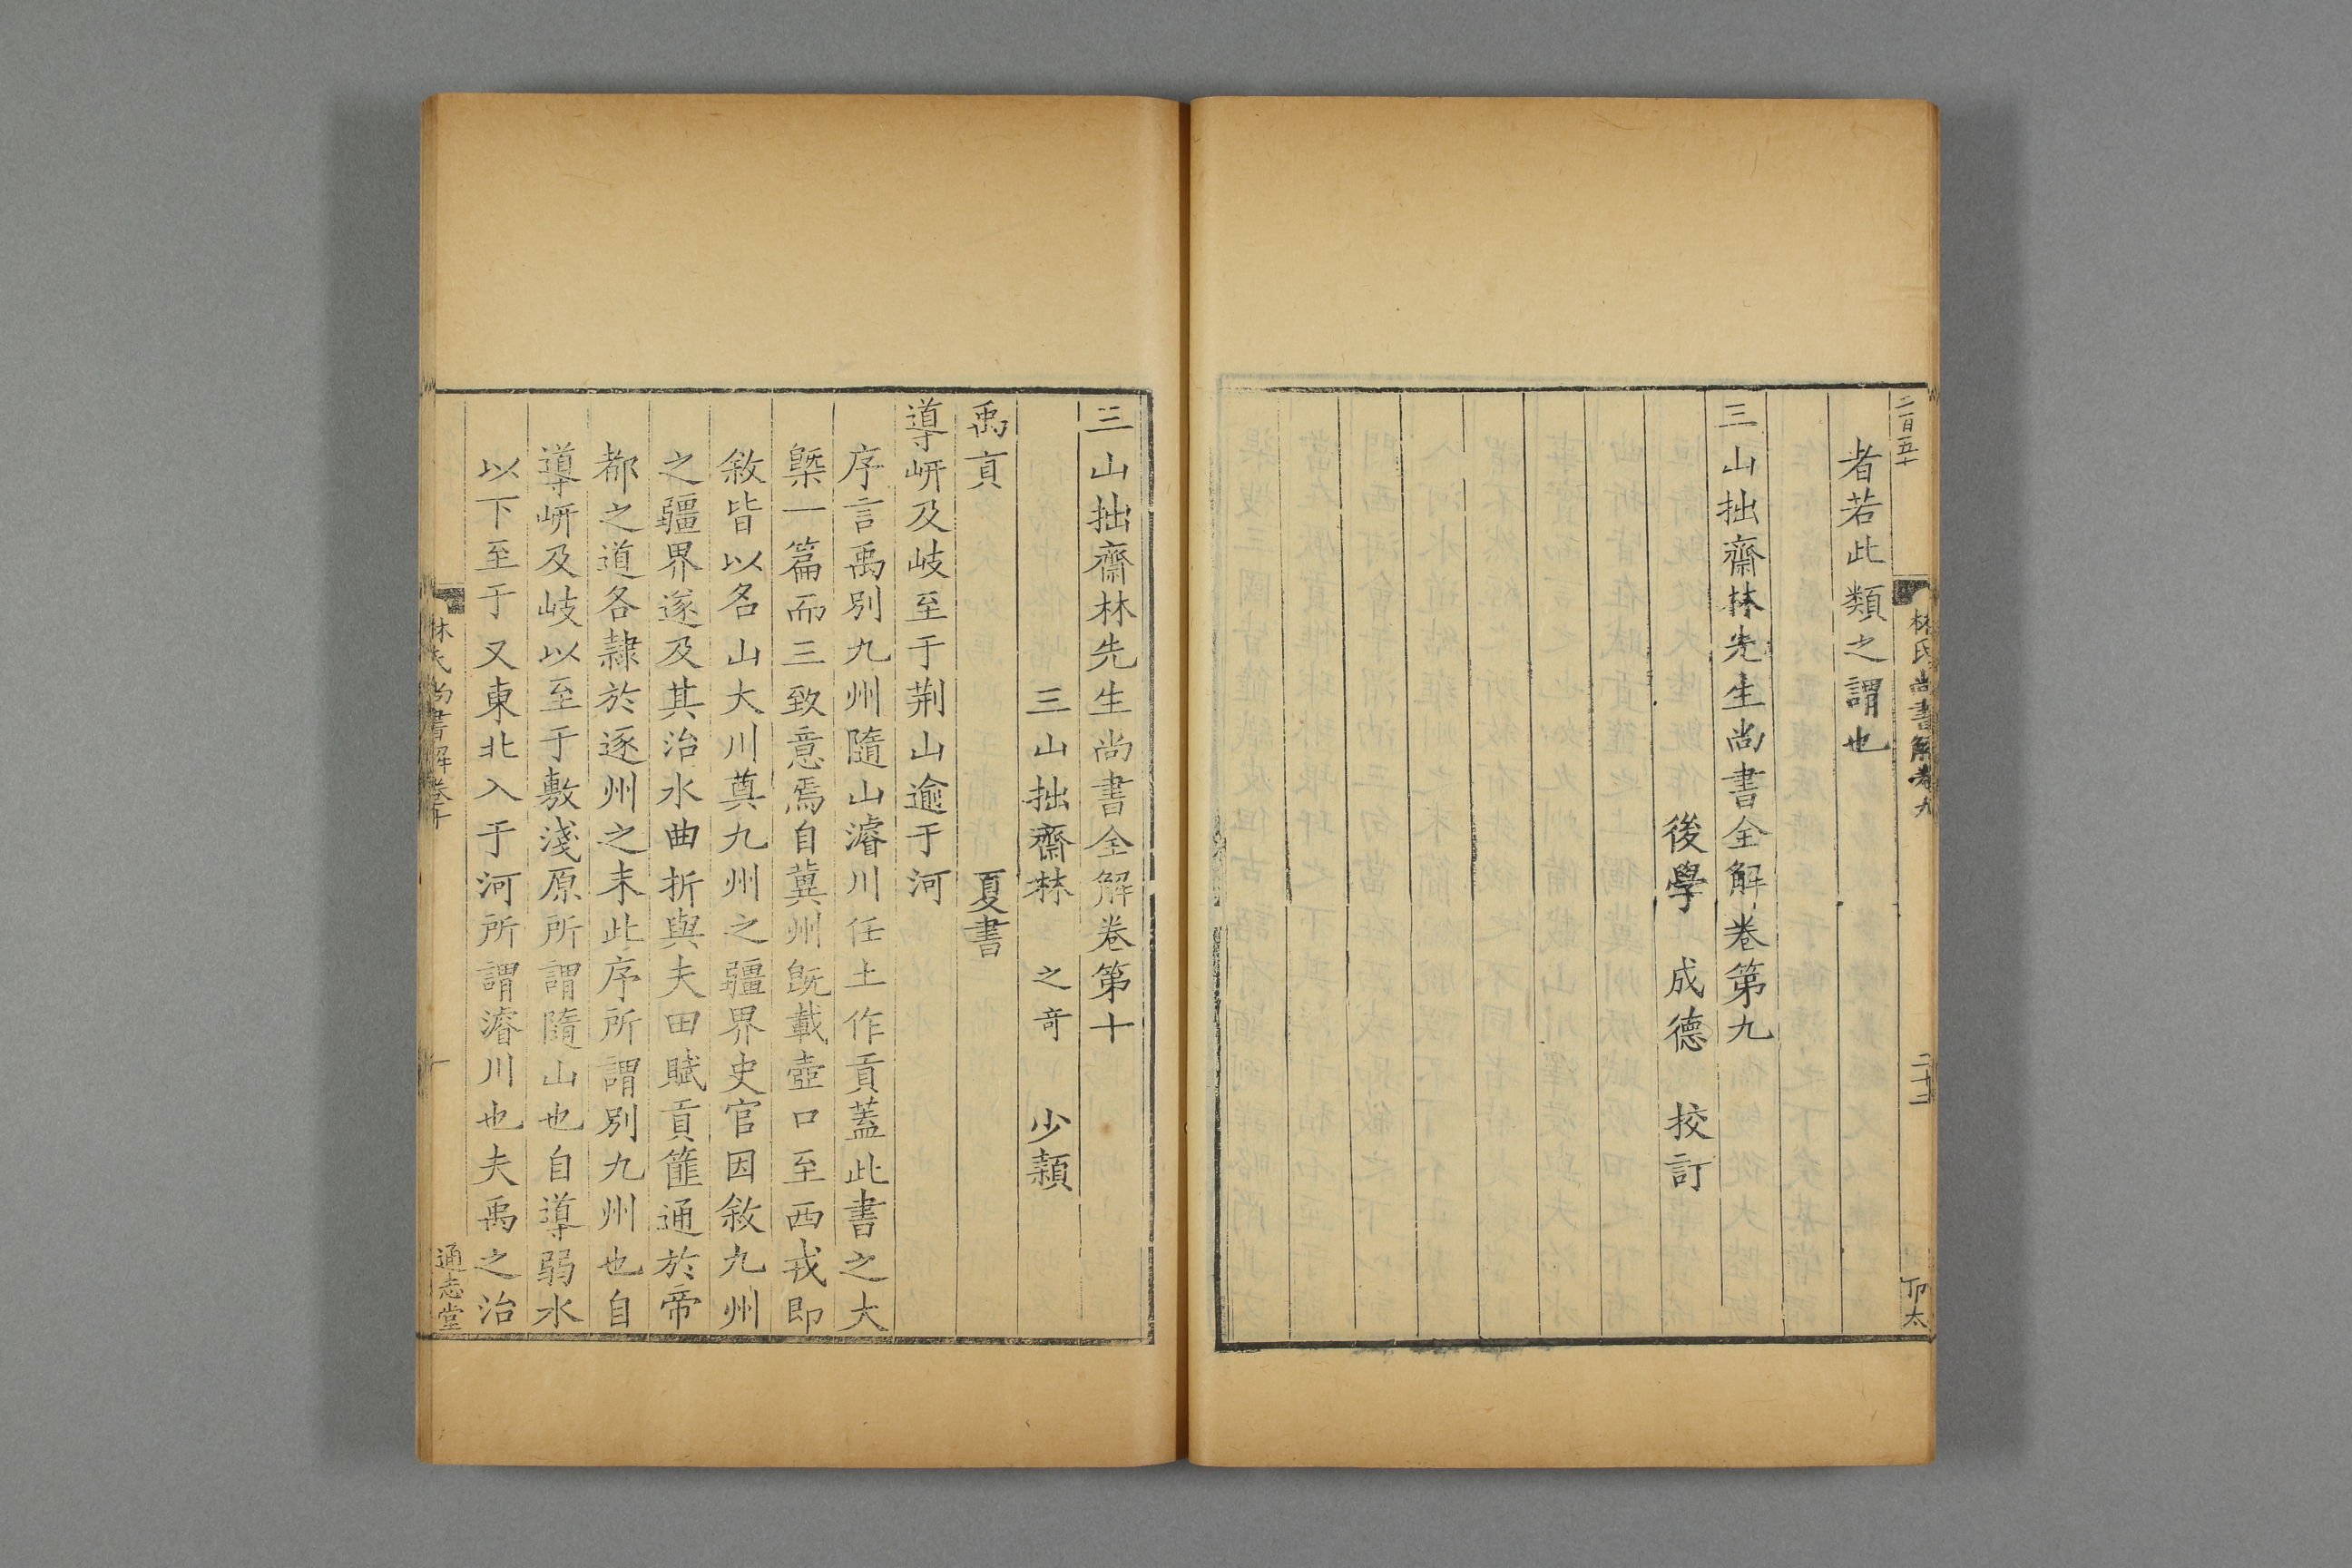 二百五十
林氏尚書解卷九
二十三
卬太
者若此類之謂也
三山拙齋林先生尚書全解卷第九
後學 成德 挍訂
三山拙齋林先生尚書全解卷第十
三山拙齋林 之奇 少穎
禹貢 夏書
導岍及岐至于荆山逾于河
序言禹別九州隨山濬川任土作貢蓋此書之大
槩一篇而三致意焉自冀州既載壺口至西戎即
敘皆以名山大川奠九州之疆界史官因敘九州
之疆界遂及其治水曲折與夫田賦貢篚通於帝
都之道各隷於逐州之末此序所謂別九州也自
導岍及岐以至于敷淺原所謂隨山也自導弱水
以下至于又東北入于河所謂濬川也夫禹之治
林氏尚書解卷十
一
通志堂